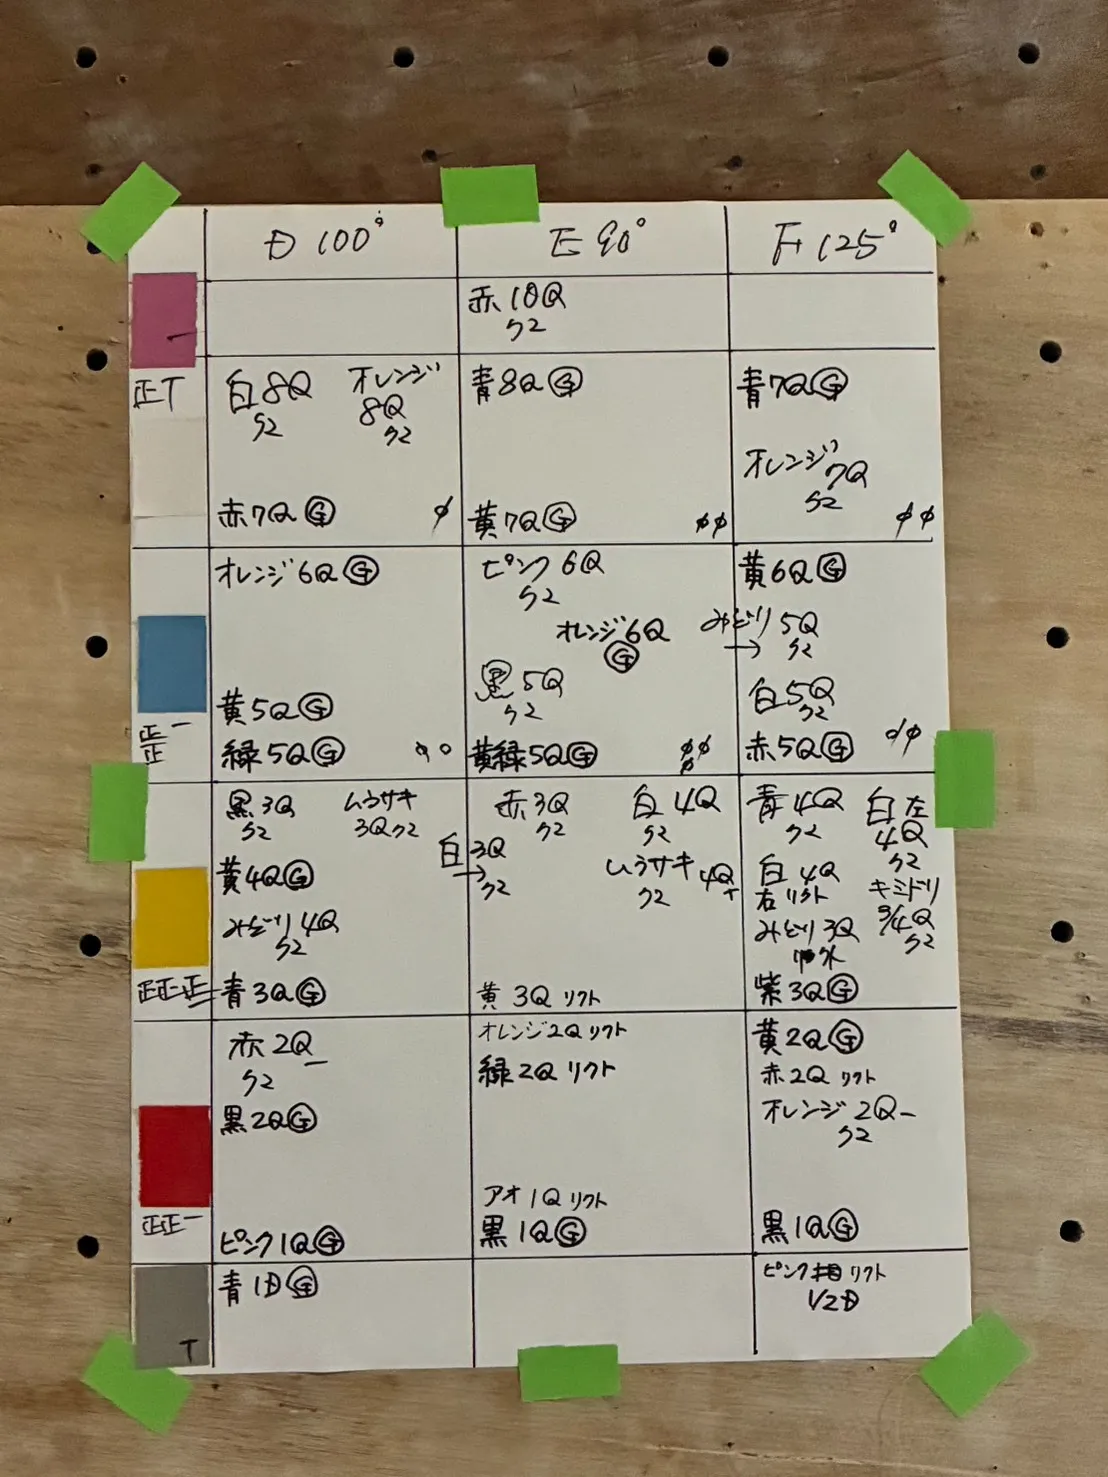 D 100° E 90° F 125°
赤 10Q
ク2
正T
白 8Q
ク2
オレンジ
8Q
ク2
赤7Q Ⓖ
青8Q Ⓖ
黄7Q Ⓖ
青7Q Ⓖ
オレンジ 7Q
ク2
正正一
オレンジ 6Q Ⓖ
黄5Q Ⓖ
緑5Q Ⓖ
ピンク 6Q
ク2
オレンジ 6Q
Ⓖ
黒 5Q
ク2
黄緑5Q Ⓖ
黄6Q Ⓖ
みどり 5Q
→ ク2
白 5Q
ク2
赤5Q Ⓖ
正正正
黒 3Q
ク2
ムラサキ
3Q ク2
黄4Q Ⓖ
みどり 4Q
ク2
青3Q Ⓖ
赤 3Q
ク2
白 4Q
ク2
白 3Q
→ ク2
ムラサキ 4Q
ク2
黄 3Q リフト
青 4Q
ク2
白 左
4Q
ク2
白 4Q
右 リフト
キミドリ
3/4Q
ク2
みどり 3Q
紫3Q Ⓖ
正正一
赤 2Q
ク2
黒2Q Ⓖ
ピンク 1Q Ⓖ
オレンジ 2Q リフト
緑 2Q リフト
アオ 1Q リフト
黒 1Q Ⓖ
黄2Q Ⓖ
赤 2Q リフト
オレンジ 2Q
ク2
黒 1Q Ⓖ
T
青 1D Ⓖ
ピンク リフト
1/2D